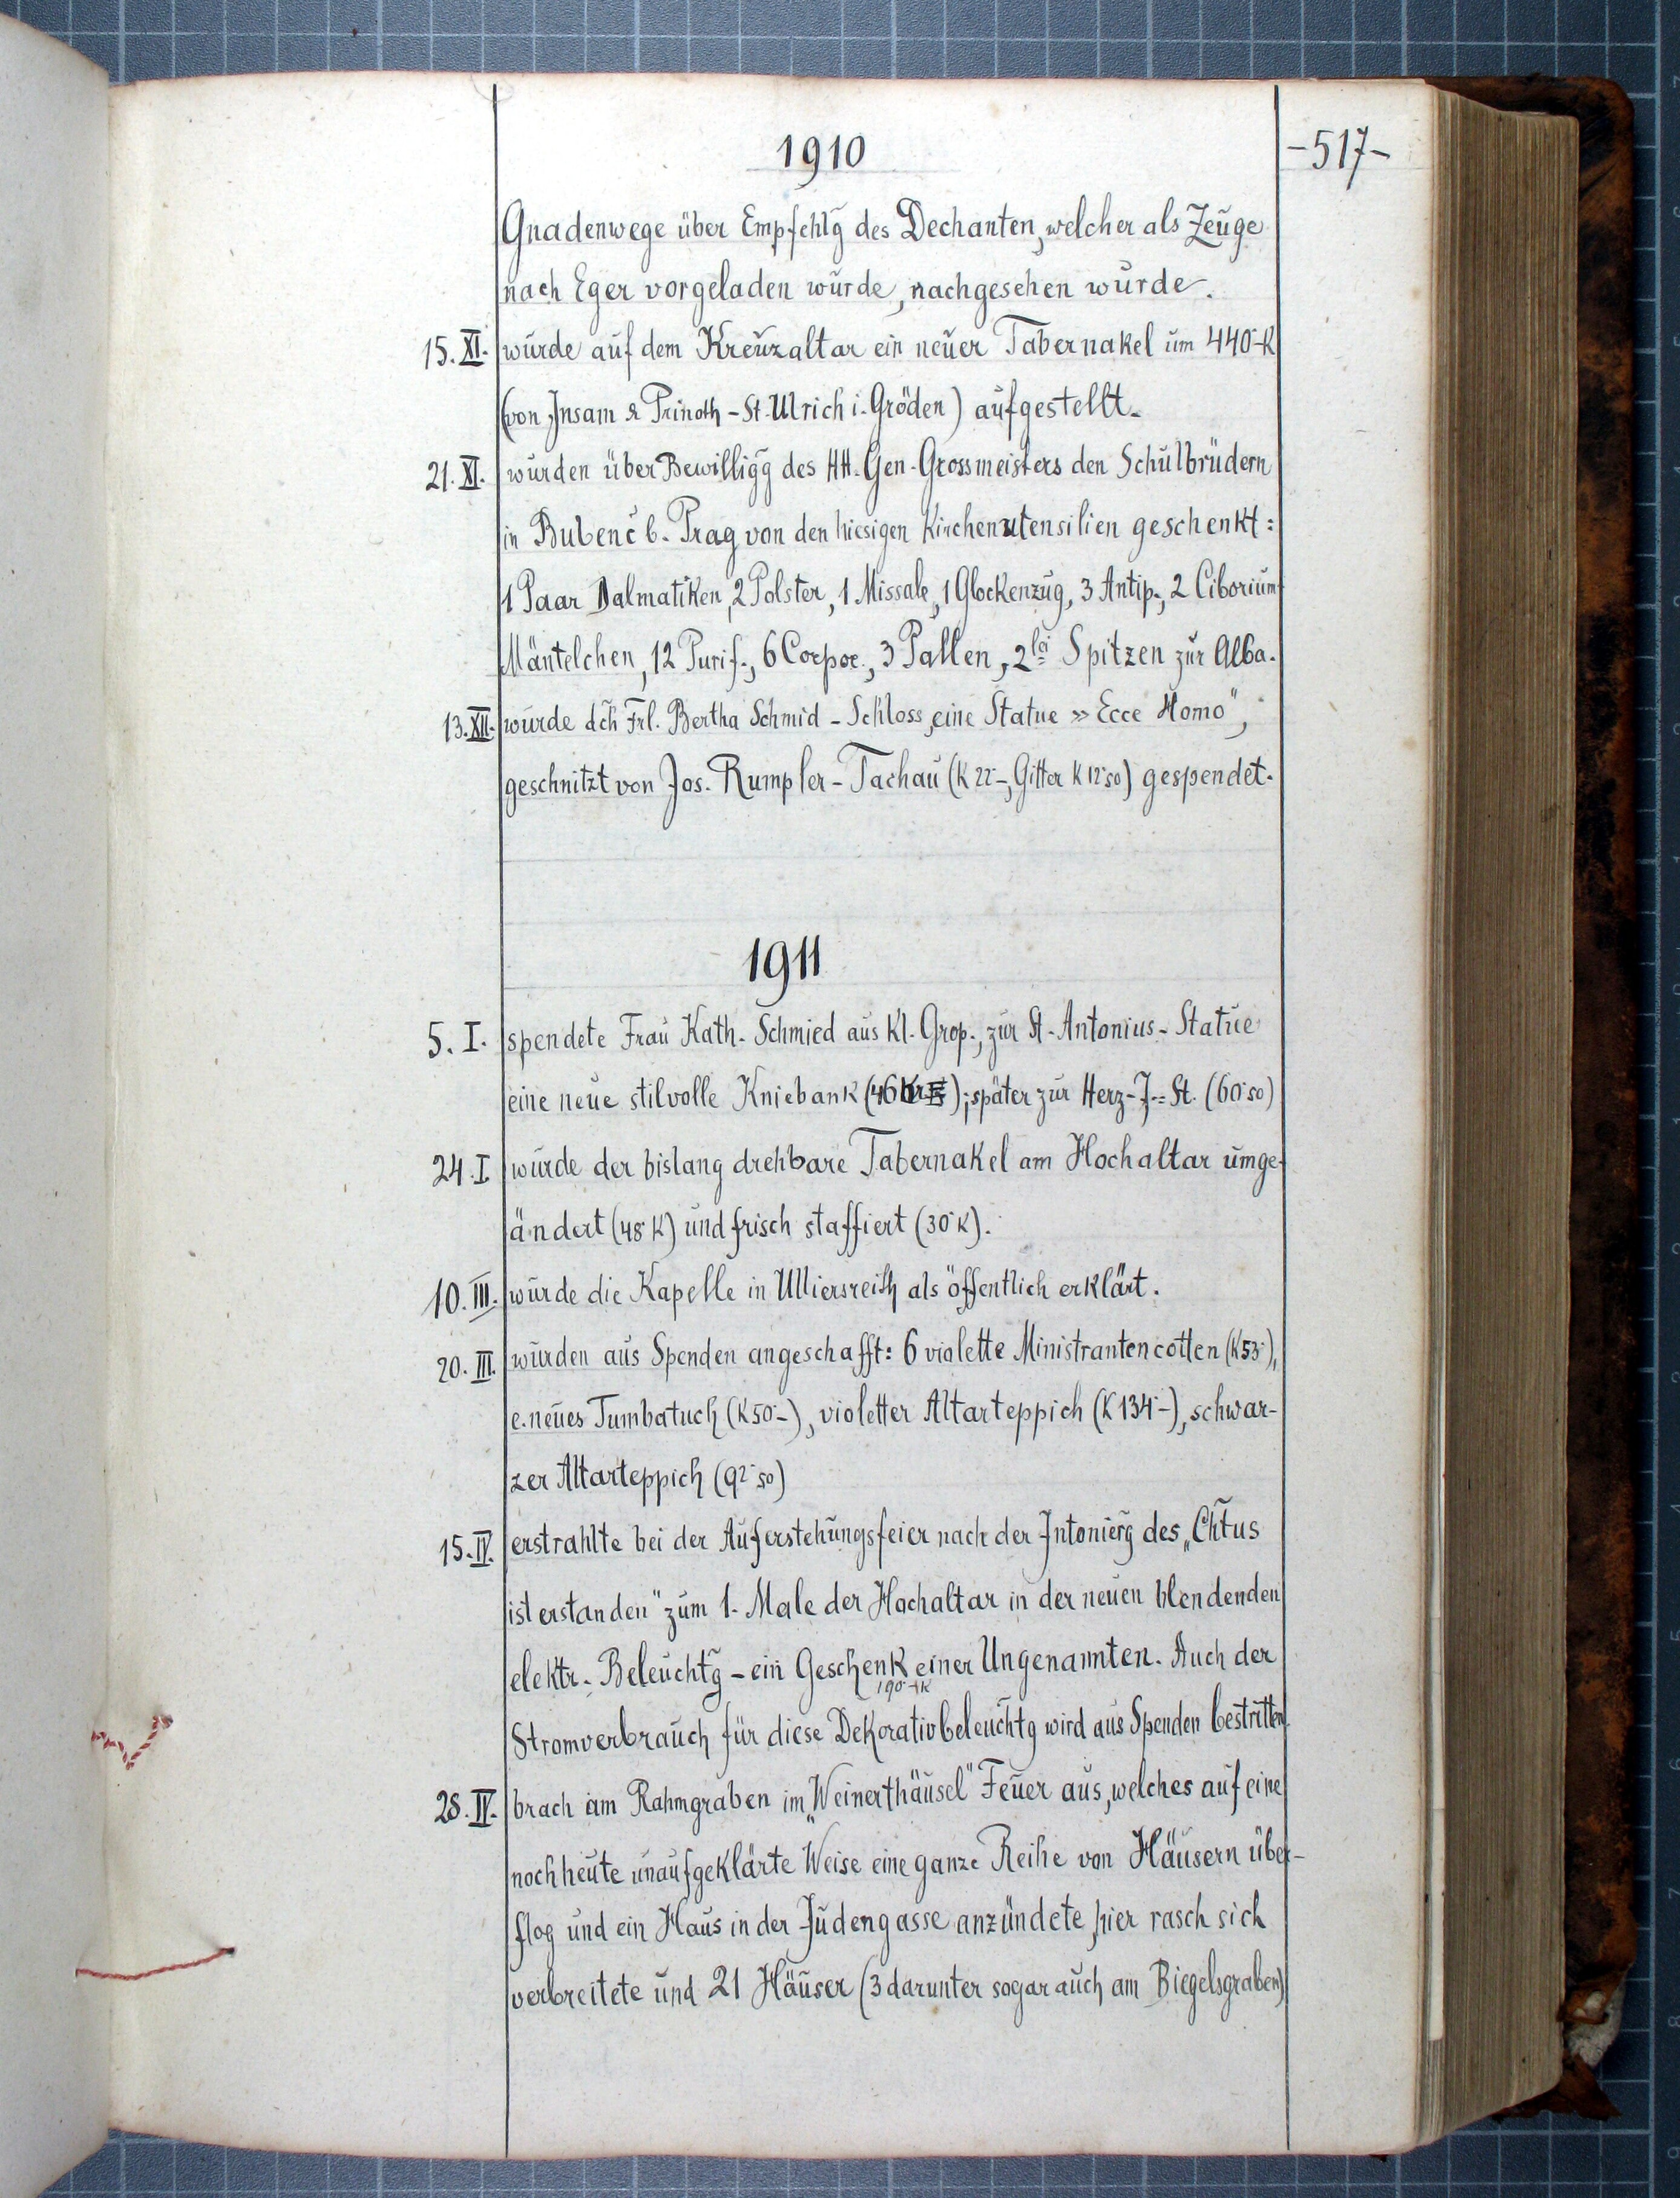 1910
-517-
Gnadenwege über Empfehlg̃ des Dechanten, welcher als Zeuge
nach Eger vorgeladen wurde, nachgesehen wurde.
15. XI. wurde auf dem Kreuzaltar ein neuer Tabernakel um 440·-K
(von Insam & Prinoth - St. Ulrich i. Gröden) aufgestellt.
21. XI. wurden über Bewilligg̃ des HH. Gen-Grossmeisters den Schulbrüdern
in Bubenč b. Prag von den hiesigen Kirchenutensilien geschenkt:
1 Paar Dalmatiken, 2 Polster, 1 Missale, 1 Glockenzug, 3 Antip., 2 Ciborium-
Mäntelchen, 12 Purif., 6 Corpor., 3 Pallen, 2lei Spitzen zur Alba.
13. XII. wurde dch̃ Frl. Bertha Schmid - Schloss, eine Statue » Ecce Homo",
geschnitzt von Jos. Rumpler - Tachau (K 22·-, Gitter K 12·50) gespendet.
1911
5. I. spendete Frau Kath. Schmied aus Kl. Grop., zur St. Antonius - Statue
eine neue stilvolle Kniebank (46 ); später zur Herz-J.= St. (60·50)
24. I. wurde der bislang drehbare Tabernakel am Hochaltar umge-
ändert (48·K) und frisch staffiert (30·K).
10. III. wurde die Kapelle in Ulliersreith als öffentlich erklärt.
20. III. wurden aus Spenden angeschafft: 6 violette Ministrantencotten (K 53·),
e. neues Tumbatuch (K 50·-), violetter Altarteppich (K 134·-), schwar-
zer Altarteppich (92·50)
15. IV. erstrahlte bei der Auferstehungsfeier nach der Intonierg̃ des „Chr̃tus
ist erstanden" zum 1. Male der Hochaltar in der neuen blendenden
elektr. Beleuchtg̃ - ein Geschenk einer Ungenannten. Auch der
190·-K
Stromverbrauch für diese Dekorativbeleuchtg wird aus Spenden bestritten.
28. IV. brach am Rahmgraben im „Weinerthäusel" Feuer aus, welches auf eine
noch heute unaufgeklärte Weise eine ganze Reihe von Häusern über-
flog und ein Haus in der Judengasse anzündete, hier rasch sich
verbreitete und 21 Häuser (3 darunter sogar auch am Biegelsgraben)